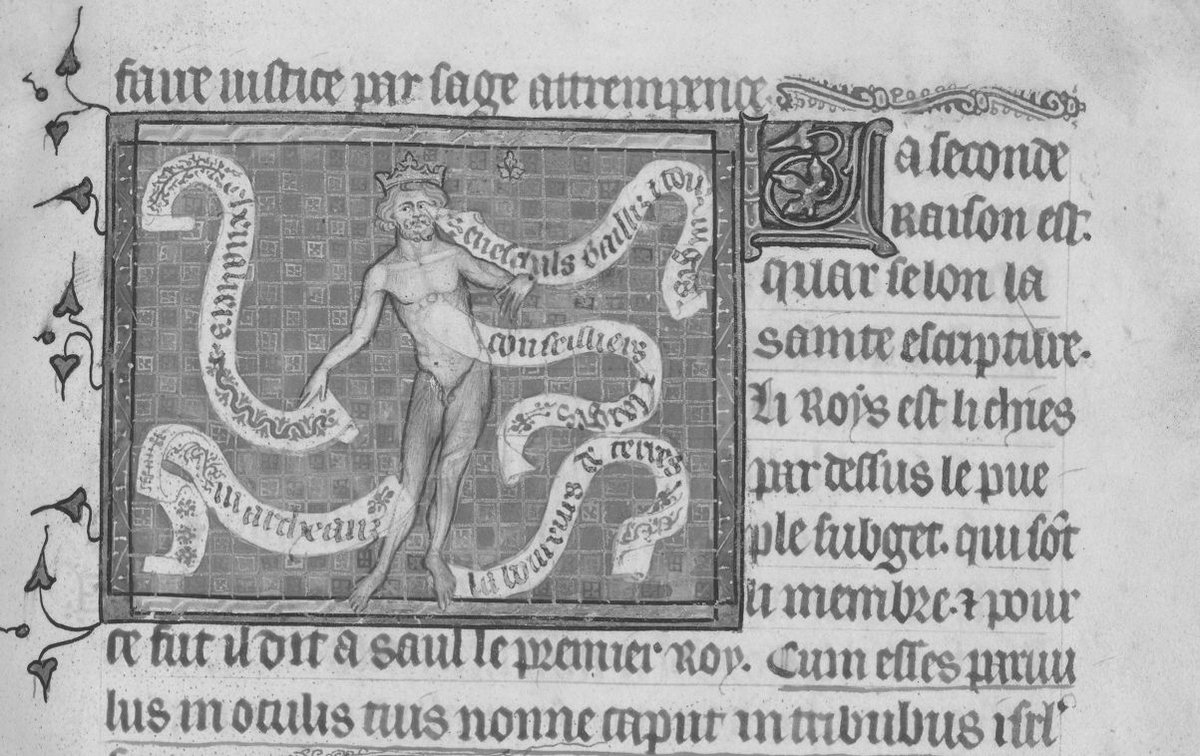 faire iustice par sage attrempence.
La seconde
raison est.
quar selon la
sainte escripture.
Li Roys est li chies
par dessus le pue
ple subget. qui sōt
li membre. ⁊ pour
ce fut il dit a saul le premier roy. Cum esses paruu
lus in oculis tuis nonne caput in tribubus isrl'
cheualiers
Seneschaus bailli ⁊ iuges
conseilliers
marcheans
laboureurs de terres